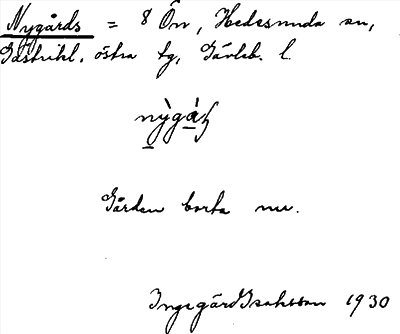 Nygårds = 8 Ön, Hedesunda sn,
Gästrikl. östra tg, Gävleb. l.
Gården borta nu.
Ingegärd Isaksson 1930